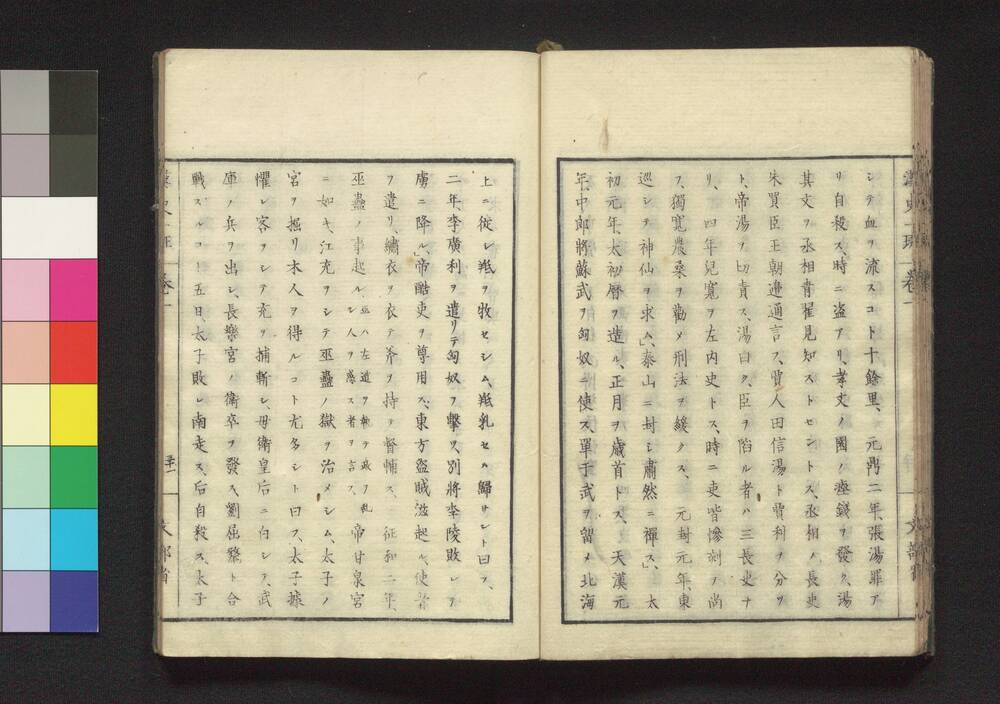 シテ血ヲ流スコト十餘里、 元鼎二年、張湯罪ア
リ自殺ス、時ニ盗アリ、孝文ノ園ノ瘞錢ヲ發ク、湯
其文ヲ丞相青翟見知ストセントス、丞相ノ長史
朱買臣王朝邊通言フ、賈人田信湯ト賈利ヲ分ツ
ト、帝湯ヲ切責ス、湯曰ク、臣ヲ陷ル者ハ三長史ナ
リ、 四年兒寬ヲ左内史トス、時ニ吏皆慘刻ヲ尚
フ、獨寬農桑ヲ勸メ刑法ヲ緩クス、 元封元年、東
巡シテ神仙ヲ求ム、泰山ニ封シ肅然ニ禪ス、 太
初元年、太初曆ヲ造ル、正月ヲ歳首トス、 天漢元
年、中郎將蘇武ヲ匈奴ニ使ス、單于武ヲ留メ北海
上ニ從シ羝ヲ牧セシム、羝乳セハ歸サント曰フ、
二年、李廣利ヲ遣リテ匈奴ヲ擊ツ、別將李陵敗レテ
虜ニ降ル、帝酷吏ヲ尊用ス、東方盜賊滋起ル、使者
ヲ遣リ、繡衣ヲ衣テ斧ヲ持ツ督補ス、 征和二年、
巫蠱ノ事起ル、巫ハ左道ヲ執テ政ヲ乱シ人ヲ惑ス者ヲ言フ、帝甘泉宮
ニ如キ、江充ヲシテ巫蠱ノ獄ヲ治メシム、太子ノ
宮ヲ掘リ木人ヲ得ルコト尤多シト曰フ、太子據
懼レ客ヲシテ充ヲ捕斬シ、母衛皇后ニ白シテ、武
庫ノ兵ヲ出シ、長樂宮ノ衛卒ヲ發ス、劉屈氂ト合
戰スルコト五日、太子敗レ南走ス、后自殺ス、太子
文部省